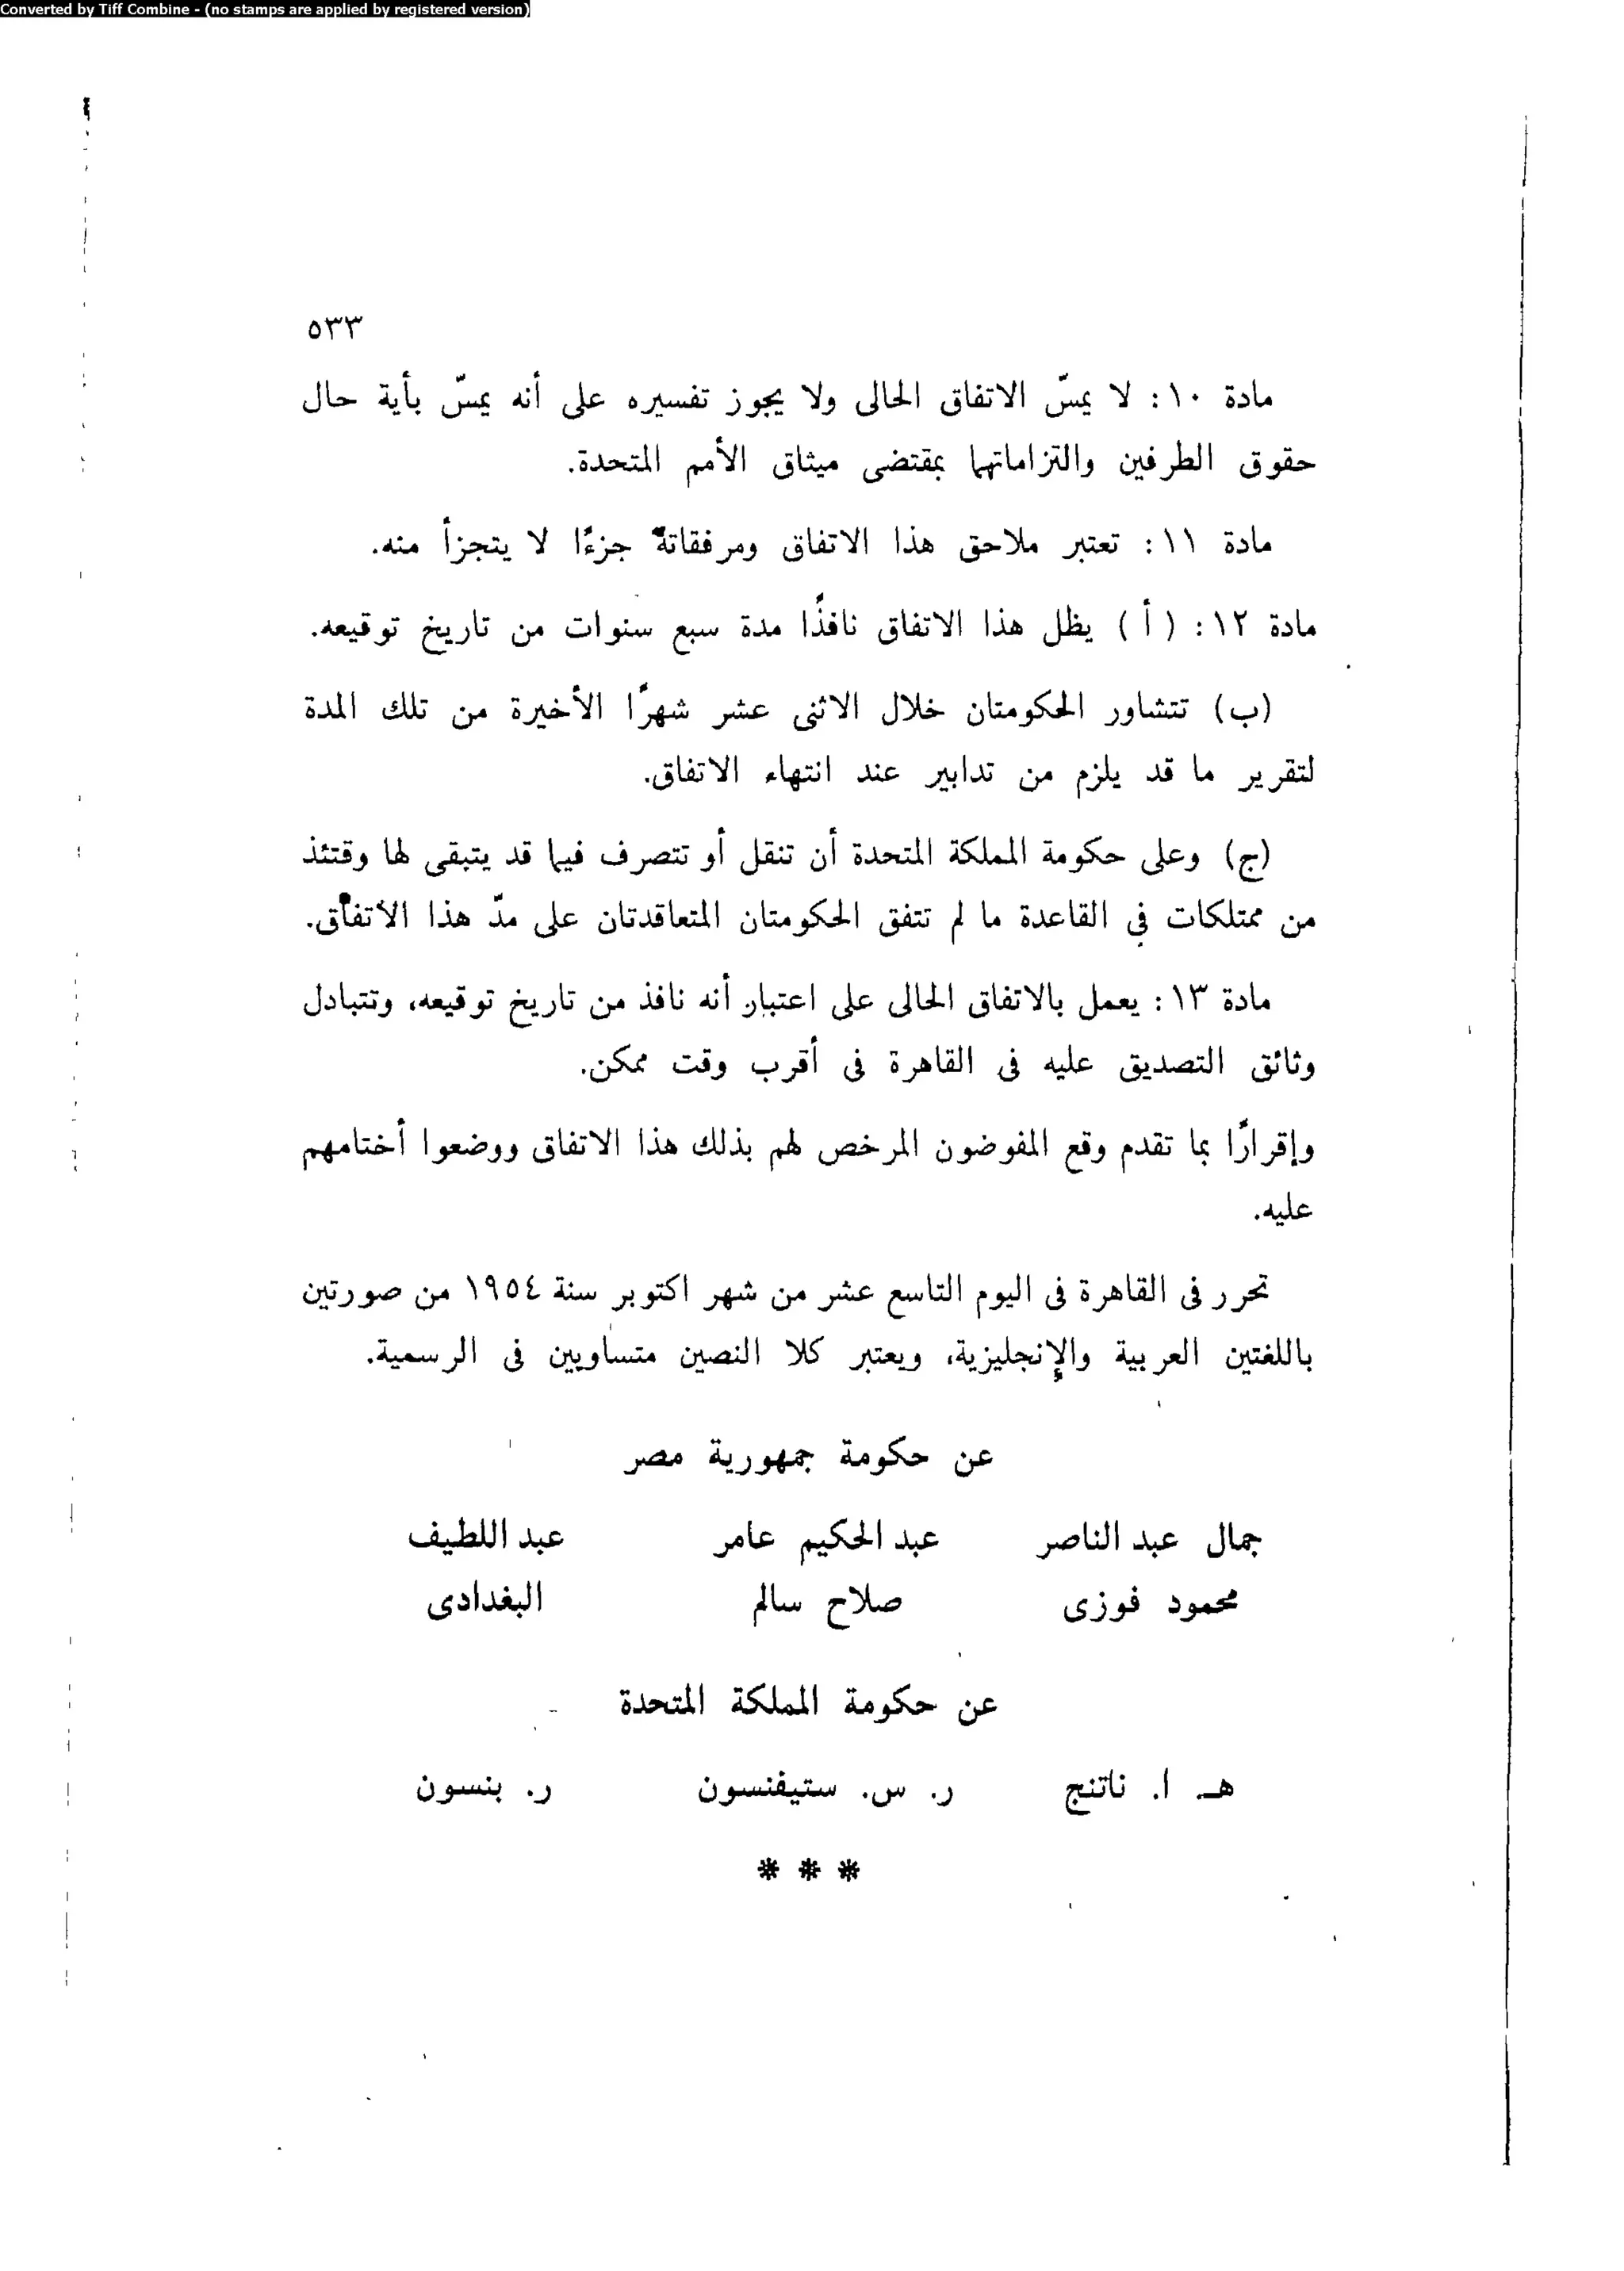 Converted by Tiff Combine - (no stamps are applied by registered version)
٥٣٣
مادة ١٠: لا يمسّ الاتفاق الحالى ولا يجوز تفسيره على أنه يمسّ بأية حال
حقوق الطرفين والتزاماتهما بمقتضى ميثاق الأمم المتحدة.
مادة ١١: تعتبر ملاحق هذا الاتفاق ومرفقاته جزءًا لا يتجزأ منه.
مادة ١٢: (أ) يظل هذا الاتفاق نافذًا مدة سبع سنوات من تاريخ توقيعه.
(ب) تتشاور الحكومتان خلال الاثنى عشر شهرًا الأخيرة من تلك المدة
لتقرير ما قد يلزم من تدابير عند انتهاء الاتفاق.
(ج) وعلى حكومة المملكة المتحدة أن تنقل أو تتصرف فيما قد يتبقى لها وقتئذ
من ممتلكات فى القاعدة ما لم تتفق الحكومتان المتعاقدتان على مدّ هذا الاتفاق.
مادة ١٣: يعمل بالاتفاق الحالى على اعتبار أنه نافذ من تاريخ توقيعه، وتتبادل
وثائق التصديق عليه فى القاهرة فى أقرب وقت ممكن.
وإقرارًا بما تقدم وقع المفوضون المرخص لهم بذلك هذا الاتفاق ووضعوا أختامهم
عليه.
تحرر فى القاهرة فى اليوم التاسع عشر من شهر اكتوبر سنة ١٩٥٤ من صورتين
باللغتين العربية والإنجليزية، ويعتبر كلا النصين متساويين فى الرسمية.
عن حكومة جمهورية مصر
جمال عبد الناصر عبد الحكيم عامر عبد اللطيف
محمود فوزى صلاح سالم البغدادى
عن حكومة المملكة المتحدة
هـ. ا. ناتنج ر. س. ستيفنسون ر. بنسون
* * *